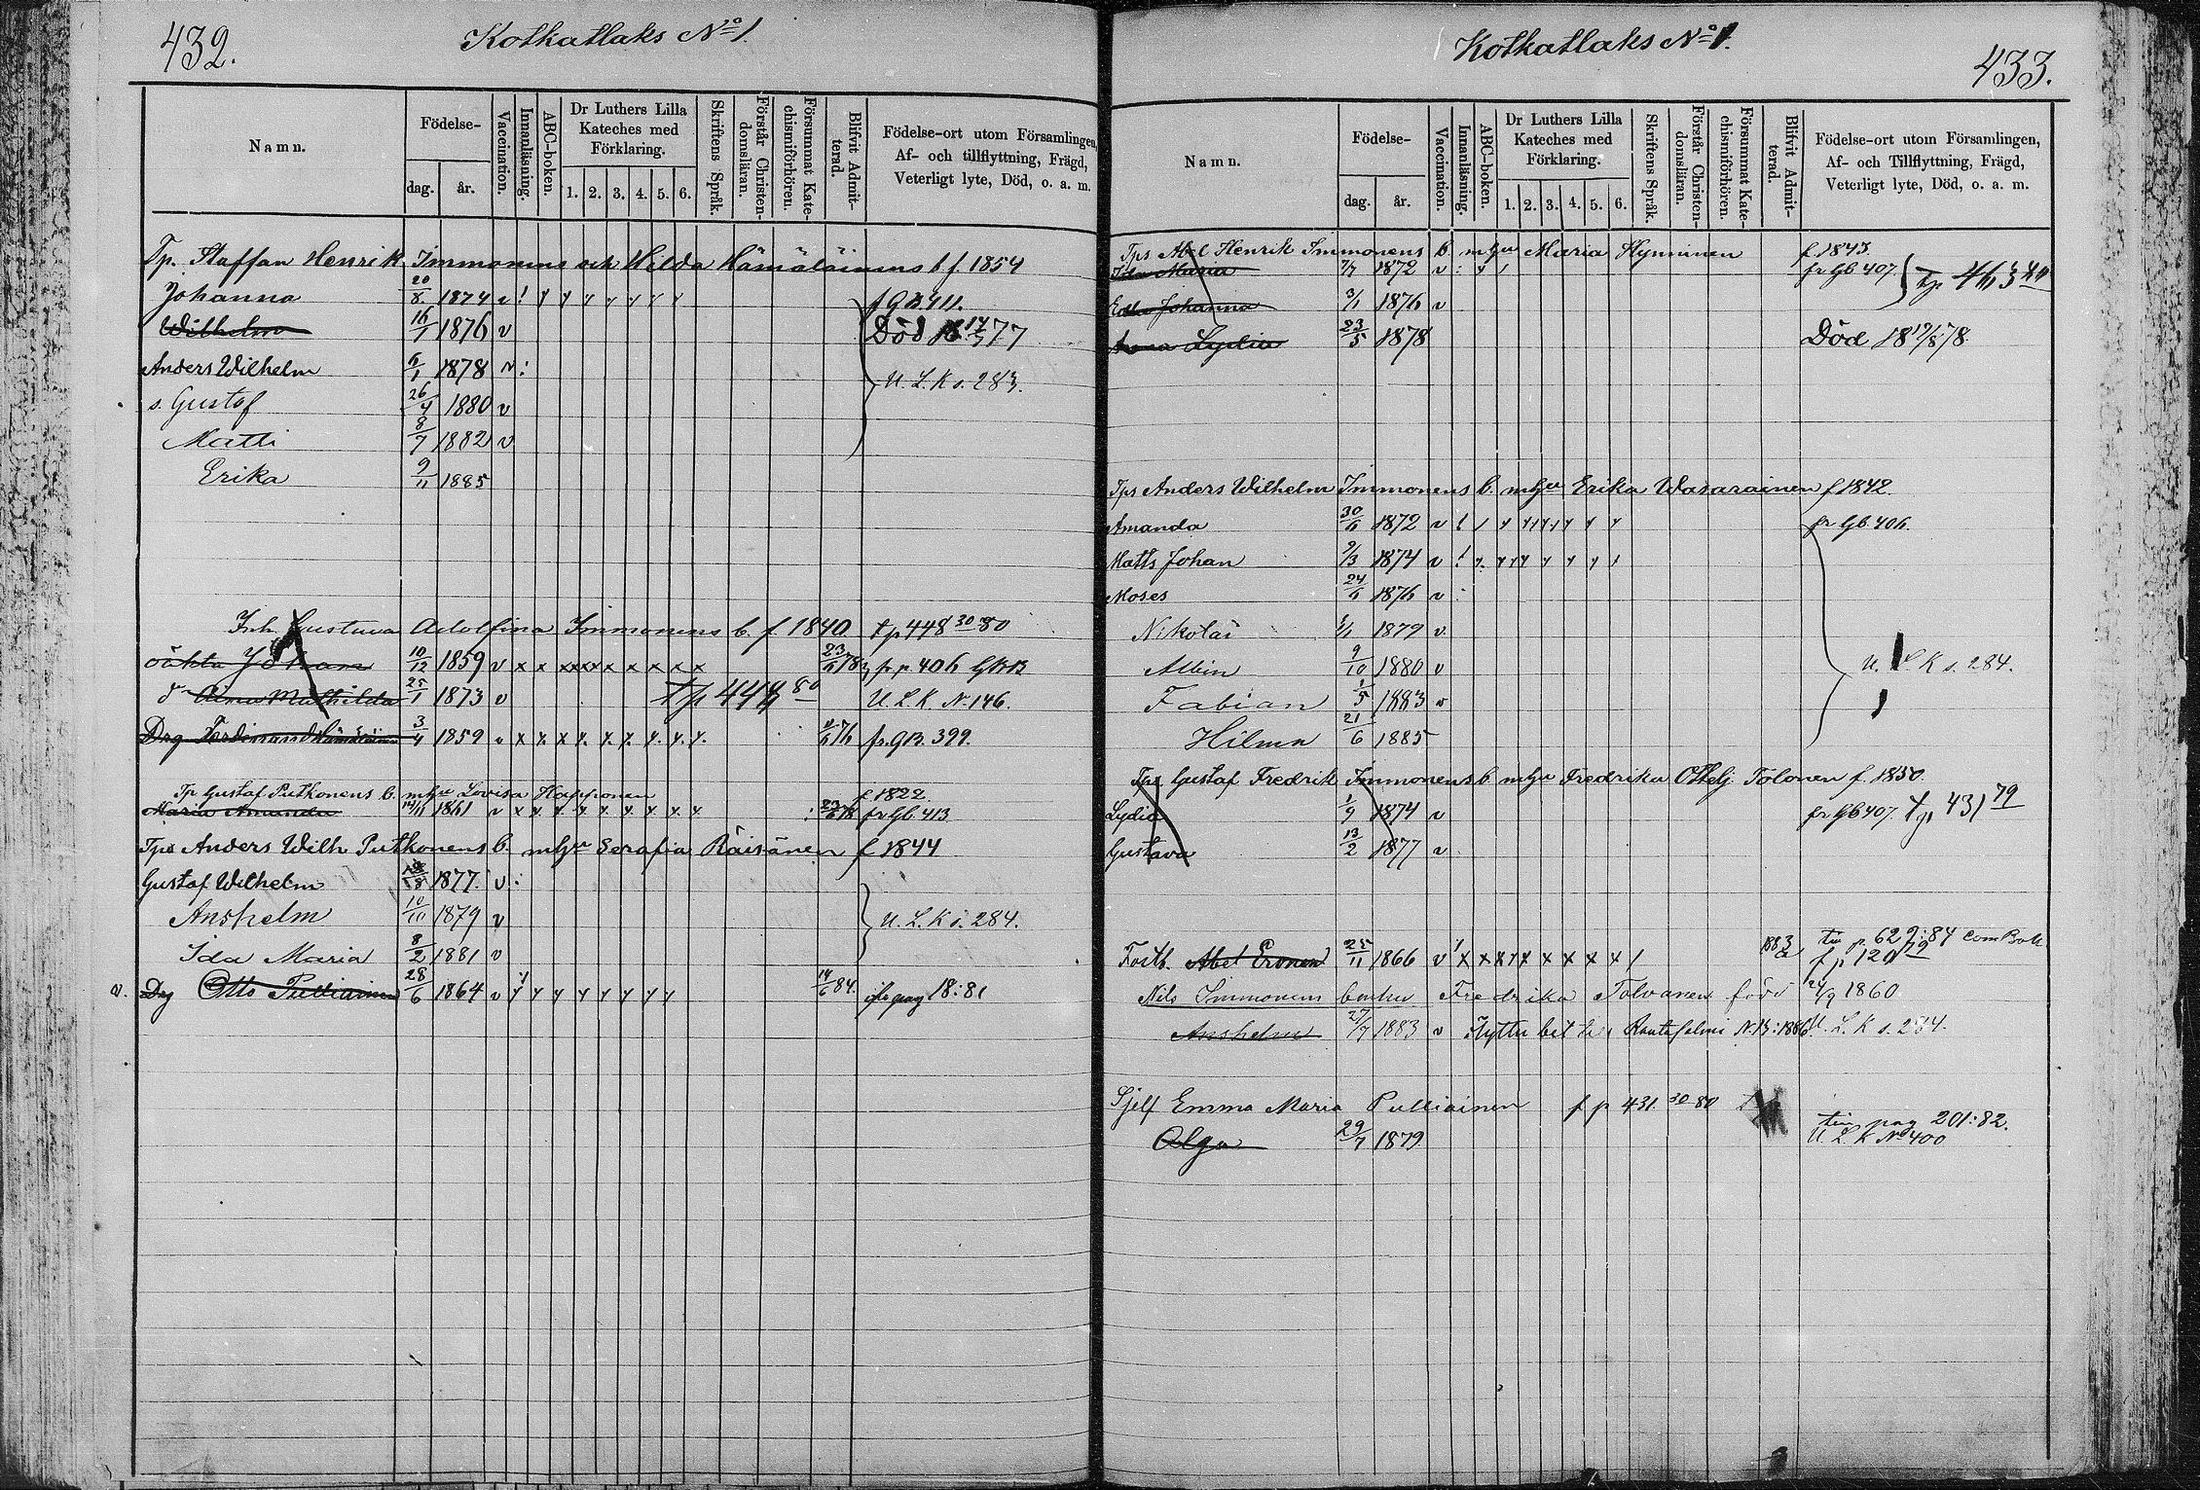 432.
Kotkatlaks No 1.
Namn.
Födelse-
dag.
år.
Vaccination.
Innanläsning.
ABC-boken.
Dr Luthers Lilla
Kateches med
Förklaring.
1. 2. 3. 4. 5. 6.
Skriftens Språk.
Förstår Christen-
domsläran.
Försummat Kate-
chismiförhören.
Blifvit Admit-
terad.
Födelse-ort utom Församlingen,
Af- och tillflyttning, Frägd,
Veterligt lyte, Död, o. a. m.
Tp. Staffan Henrik Immonens och Hilda Hämäläinens b f. 1854
Johanna 20/8 1874 v f GB. 411.
Wilhelm 16/1 1876 v Död 77
Anders Wilhelm 6/1 1878 v: U. L. K s. 283.
s. Gustaf 26/4 1880 v
Matti 8/7 1882 v
Erika 9/11 1885
Inh. Gustava Adolfina Immonens b. f. 1840 tp 448 30/80
oäkta Johan 10/12 1859 v x x x x x x x x x x fr. p. 406 GKB
d 25/1 1873 v U. L. K. N. 146.
Drg Ferdinand Hämäläinen 3/4 1859 v x x x x. x. x. x. x. x. fr. GB. 399.
Tp Gustaf Putkonens b. m hu Lovisa Happonen f 1822
Maria Amanda 1861 v x x x x x x x x fr Gb. 413
Tps Anders Wilh Putkonens b. m hu Serafia Räisänen f 1844
Gustaf Wilhelm 1877. v:
Anshelm 10/10 1879 v U. L. K s. 284.
Ida Maria 8/2 1881 v
v. Drg Otto Pulliainen 28/6 1864 v 14/6 84. pag 18:81
433.
Kotkatlaks No 1.
Namn.
Födelse-
dag.
år.
Vaccination.
Innanläsning.
ABC-boken.
Dr Luthers Lilla
Kateches med
Förklaring.
1. 2. 3. 4. 5. 6.
Skriftens Språk.
Förstår Christen-
domsläran.
Försummat Kate-
chismiförhören.
Blifvit Admit-
terad.
Födelse-ort utom Församlingen,
Af- och Tillflyttning, Frägd,
Veterligt lyte, Död, o. a. m.
Tps Abel Henrik Immonens b m hu Maria Hynninen f. 1843.
Ida Maria 7/7 1872 v: fr Gb 407.
Edla Johanna 3/1 1876 v
Anna Lydia 23/5 1878 Död 18 17/8 78.
Tps Anders Wilhelm Immonens b. m hu Erika Wasarainen f 1842.
Amanda 30/6 1872 v fr Gb. 406.
Matts Johan 9/3 1874 v
Moses 24/6 1876 v
Nikolai 1879 v.
Albin 9/10 1880 v U. L. K s. 284.
Fabian 1/5 1883 v
Hilma 21/6 1885
Tps Gustaf Fredrik Immonens b m hu Fredrika Tolonen f. 1850.
Lydia 1/9 1874 v fr Gb 407. 431 79
Gustava 13/2 1877 v
Abel Eronen 25/11 1866 v x x x x x x x x x 1883 p. 629:84
f p 120
Nils Immonens m hu Fredrika Tolvanen född 24/9 1860
Anshelm 27/7 1883 v Rantasalmi N. 13:1886 U. L. K s. 284.
Sjelf Emma Maria Pulliainen f p 431. 30 80
pag 201:82.
Olga 29/7 1879 U L K No 400